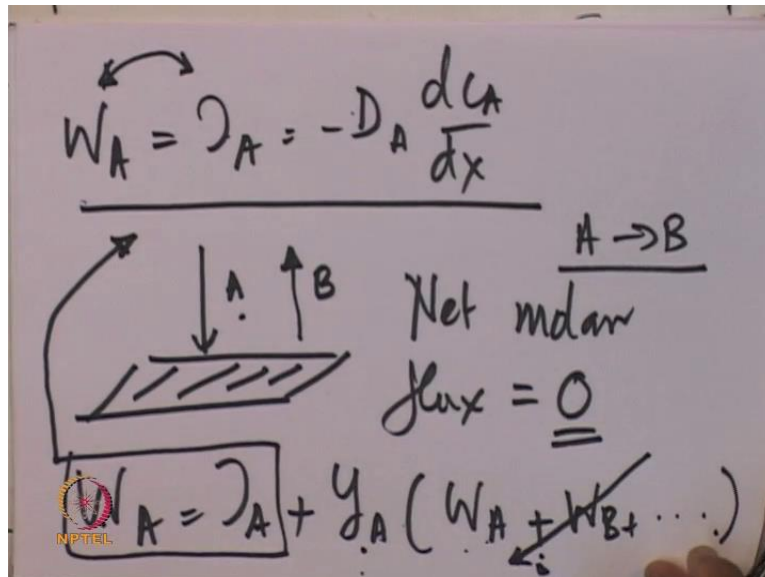 W_A = J_A = -D_A dC_A/dx
A → B
A B
Net molar
flux = 0
W_A = J_A + y_A (W_A + W_B + ....)
NPTEL